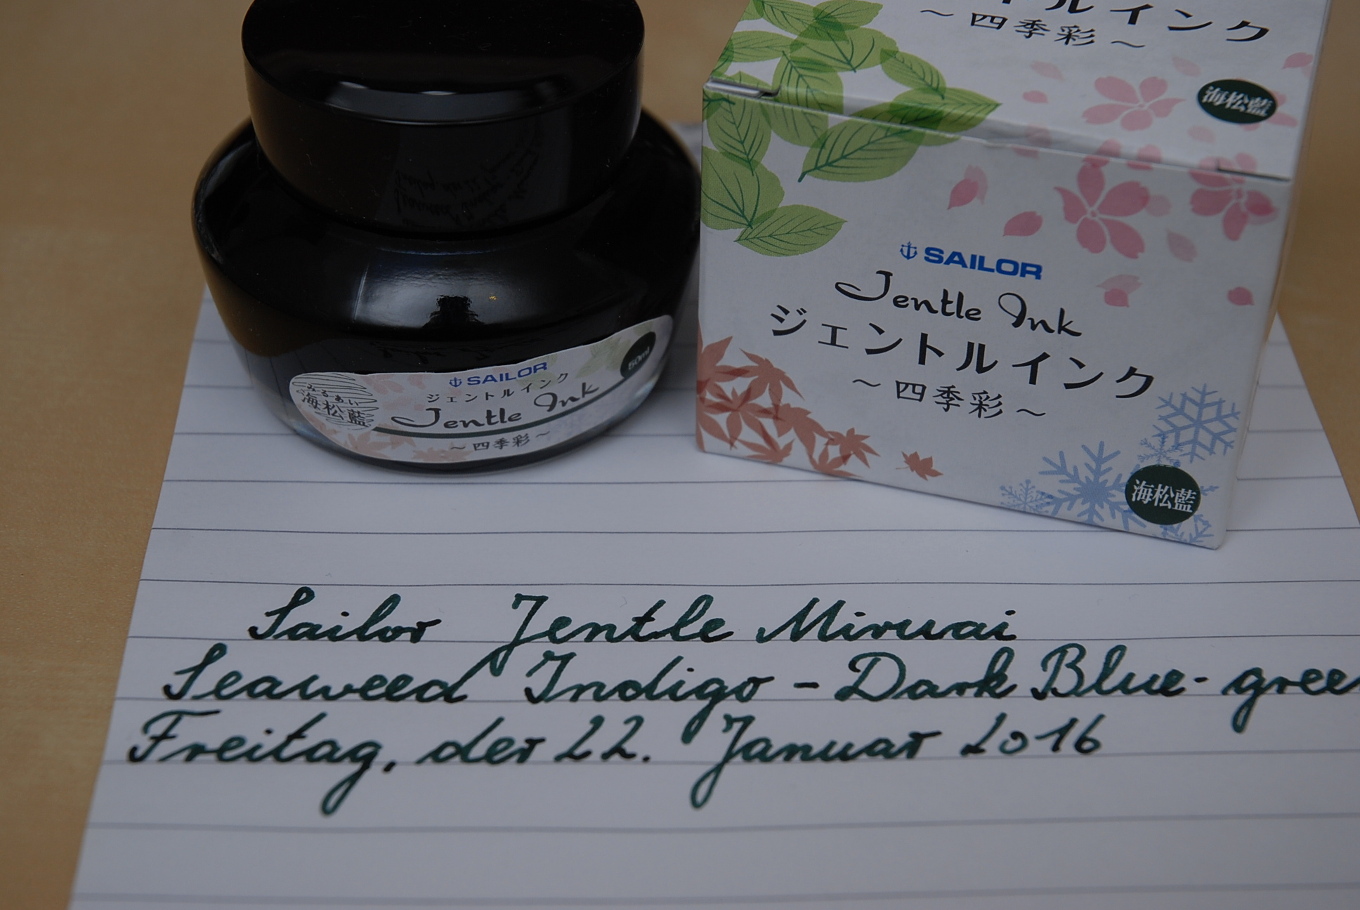 ルインク
～四季彩～
海松藍
SAILOR
Jentle Ink
ジェントルインク
～四季彩～
海松藍
みるあい
海松藍
SAILOR
ジェントルインク
Jentle Ink
～四季彩～
50ml
Sailor Jentle Miruai
Seaweed Indigo - Dark Blue-gree
Freitag, der 22. Januar 2016